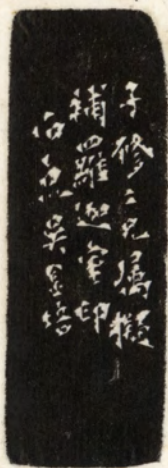 子修二兄屬擬
補羅迦室印
石泉吳金培